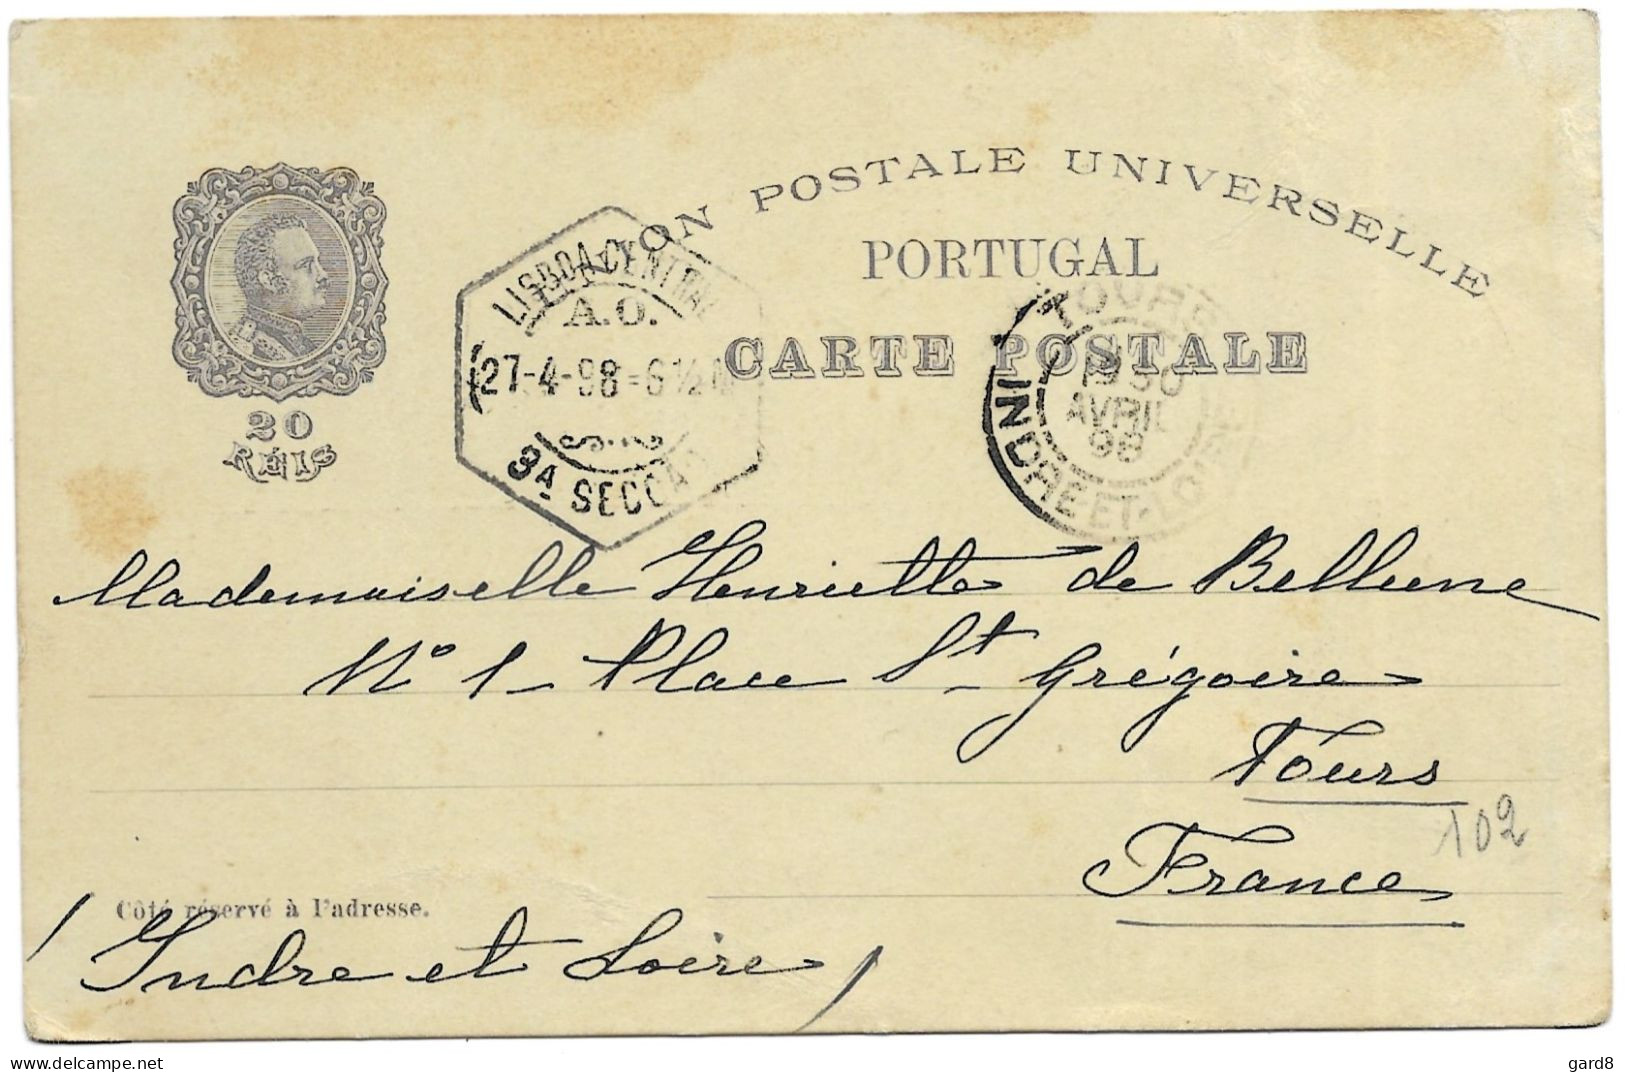 UNION POSTALE UNIVERSELLE
PORTUGAL
CARTE POSTALE
20
RÉIS
LISBOA CENTRAL
A.O.
27-4-98=6½
3A SECCAO
TOURS
30
AVRIL
98
INDRE-ET-LOIRE
Mademoiselle Henriette de Bellune
No 1 - Place St Grégoire
Tours
France
102
Côté réservé à l'adresse.
(Indre et Loire)
gard8
www.delcampe.net